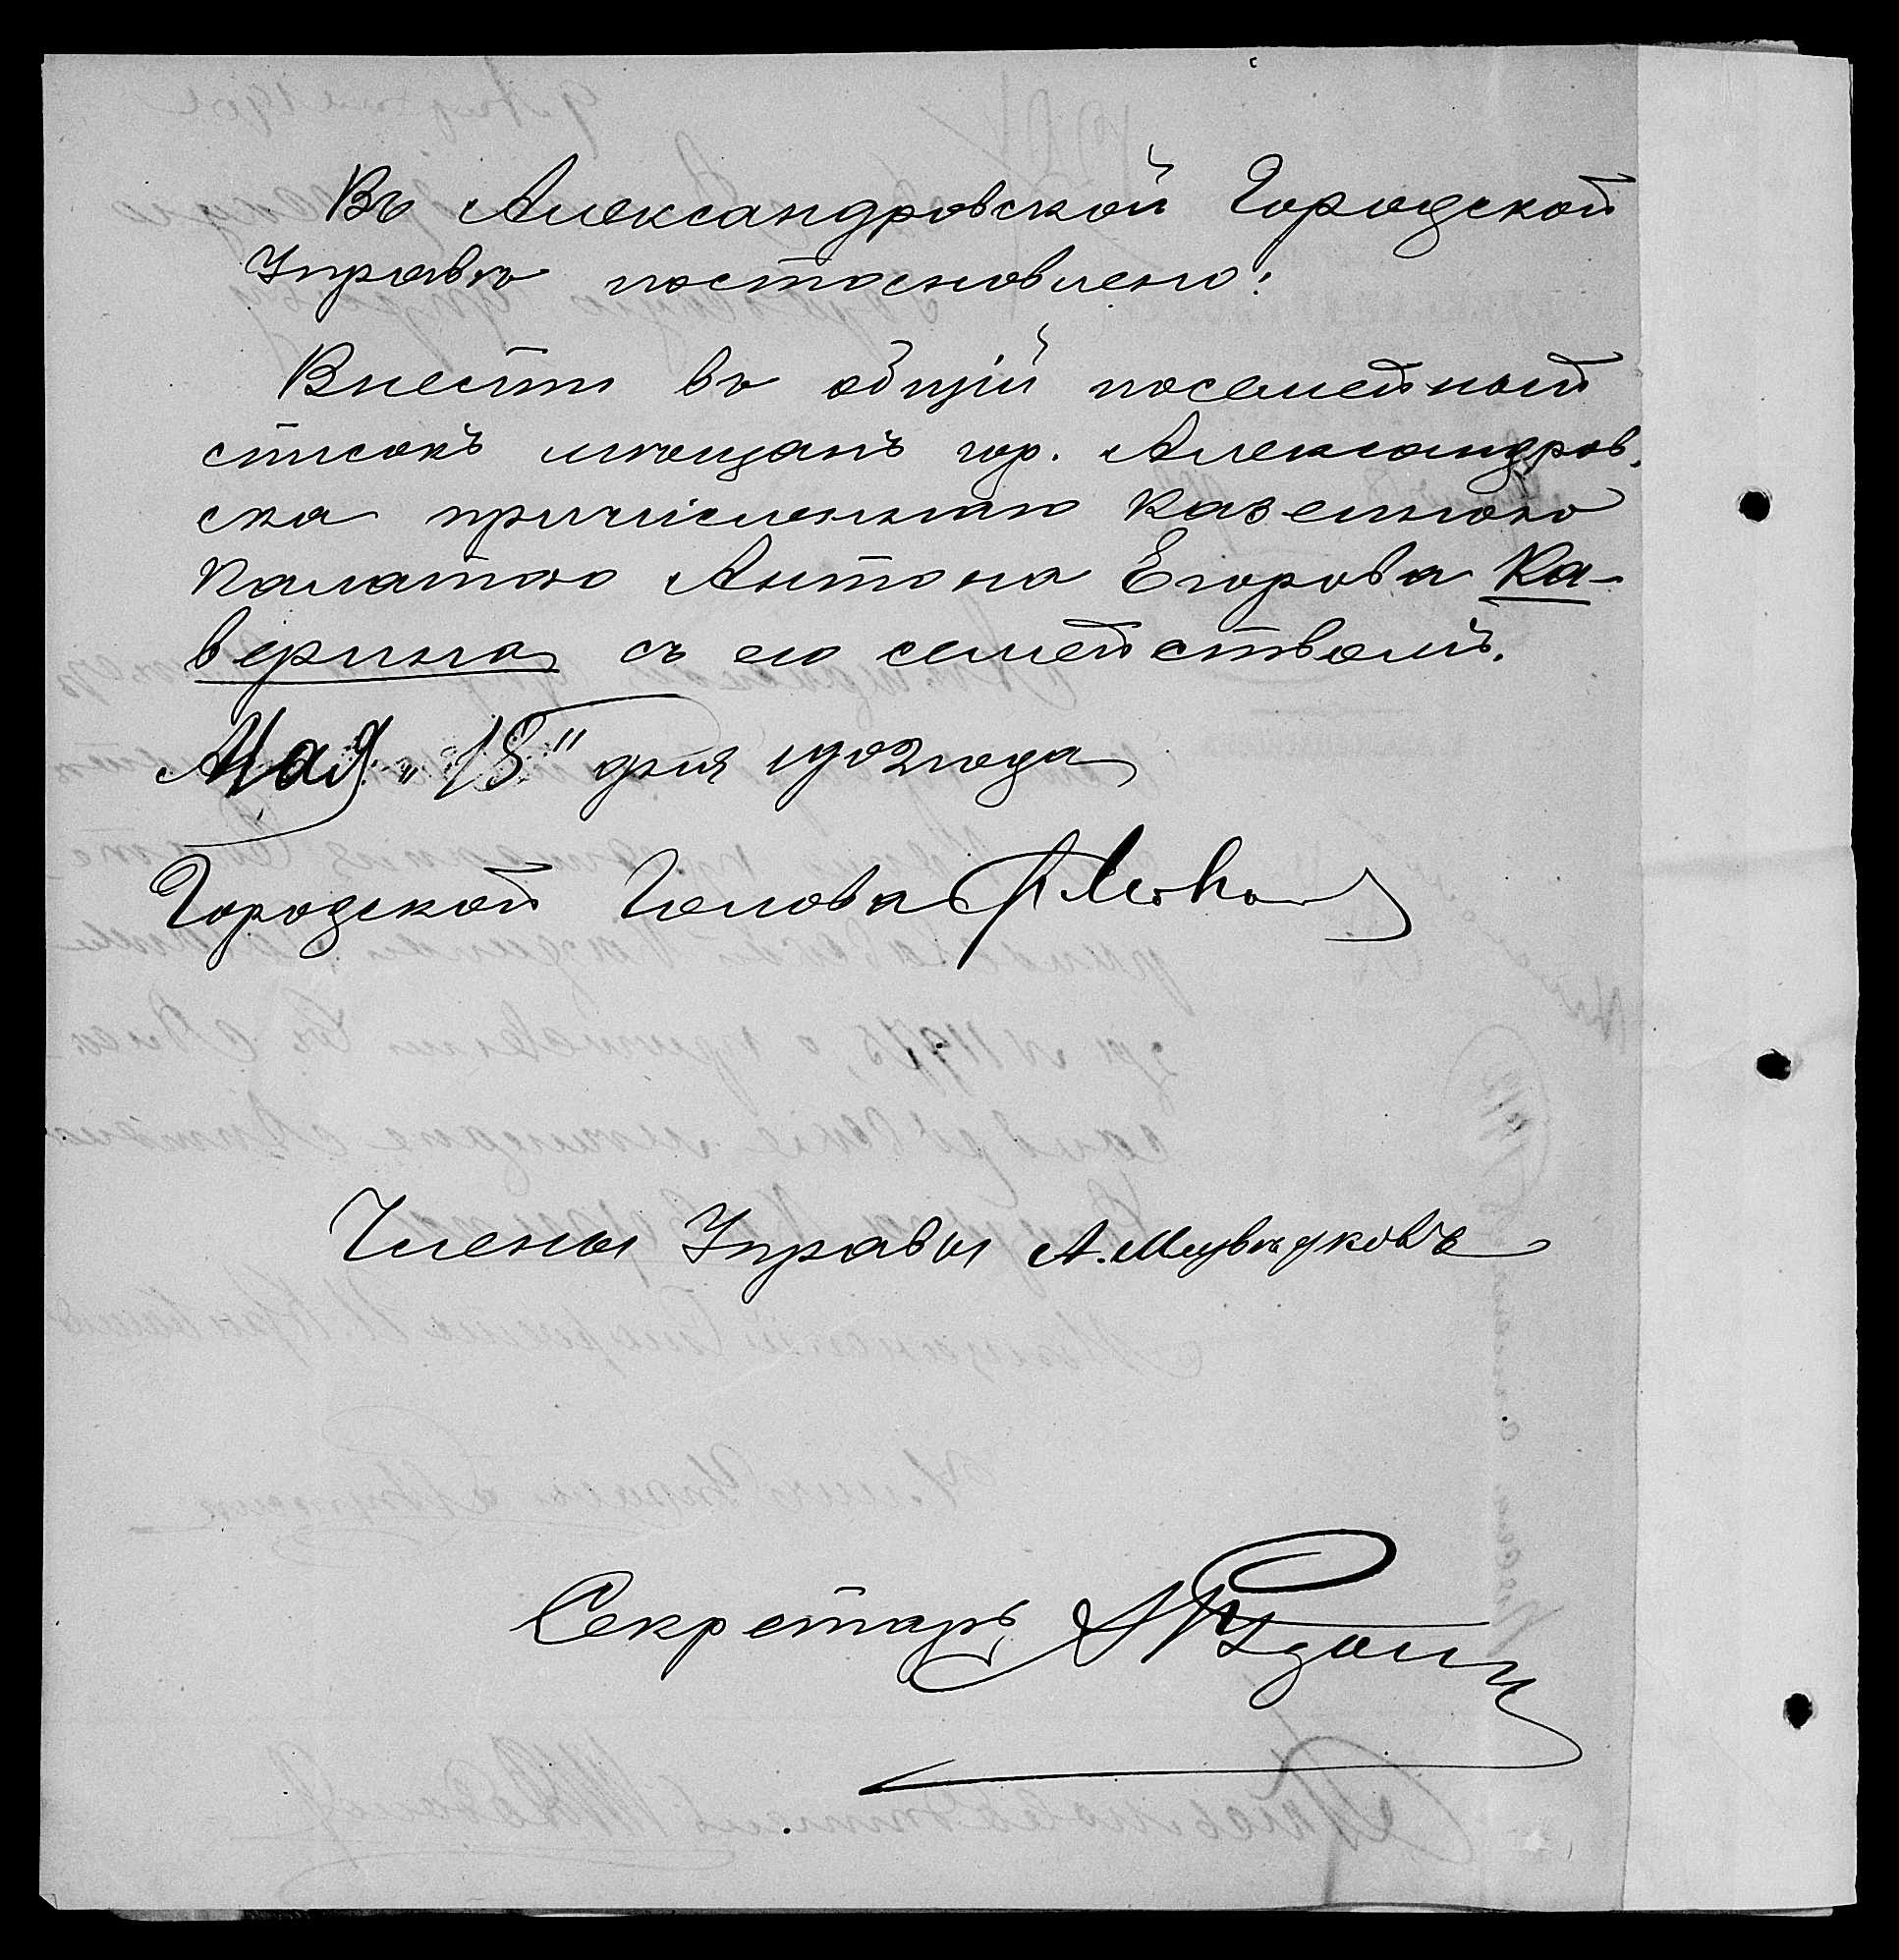 Въ Александровской Городской
Управѣ постановлено:
Внести въ общій посемейный
списокъ мѣщанъ гор. Александров-
ска причисленнаго Казенною
Палатою Антона Егорова Ка-
верина съ его семействомъ.
Мая „18" дня 1902 года
Городской Голова
Члены Управы А. Медвѣдковъ
Секретарь